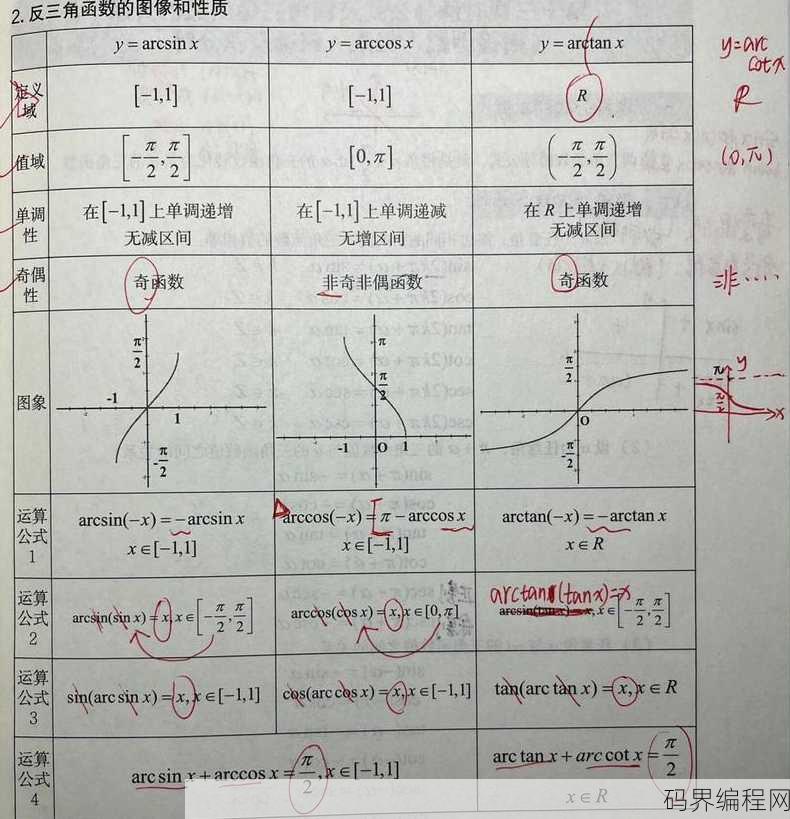 2. 反三角函数的图像和性质
y = arcsin x
y = arccos x
y = arctan x
y=arc
cot x
定义
域
[−1,1]
[−1,1]
R
R
值域
[−π/2, π/2]
[0, π]
(−π/2, π/2)
(0,π)
单调
性
在[−1,1]上单调递增
无减区间
在[−1,1]上单调递减
无增区间
在 R 上单调递增
无减区间
奇偶
性
奇函数
非奇非偶函数
奇函数
=非····
图象
π/2
-1
1
-π/2
π
π/2
-1
O
1
π/2
O
-π/2
π
y
π/2
x
运算
公式
1
arcsin(−x) = −arcsin x
x∈[−1,1]
arccos(−x) = π − arccos x
x∈[−1,1]
arctan(−x) = −arctan x
x∈R
运算
公式
2
arcsin(sin x) = x, x∈[−π/2, π/2]
arccos(cos x) = x, x∈[0, π]
arctan(tanx)=x
arcsin(tan x) = x, x∈[−π/2, π/2]
运算
公式
3
sin(arc sin x) = x, x∈[−1,1]
cos(arc cos x) = x, x∈[−1,1]
tan(arc tan x) = x, x∈R
运算
公式
4
arc sin x + arccos x = π/2, x∈[−1,1]
arc tan x + arc cot x = π/2
x∈R
码界编程网